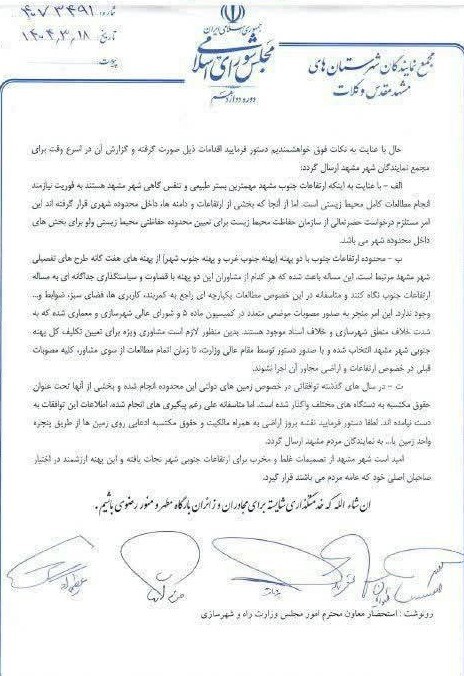 شماره: ۴۰۷۳۴۹۱
تاریخ ۱۴۰۴,۳,۱۸
پیوست:
جمهوری اسلامی ایران
مجلس شورای اسلامی
دوره دوازدهم
مجمع نمایندگان شهرستان های
مشهد مقدس و کلات
حال با عنایت به نکات فوق خواهشمندیم دستور فرمایید اقدامات ذیل صورت گرفته و گزارش آن در اسرع وقت برای
مجمع نمایندگان شهر مشهد ارسال گردد:
الف – با عنایت به اینکه ارتفاعات جنوب مشهد مهمترین بستر طبیعی و تنفس گاهی شهر مشهد هستند به فوریت نیازمند
انجام مطالعات کامل محیط زیستی است. اما از آنجا که بخشی از ارتفاعات و دامنه ها، داخل محدوده شهری قرار گرفته اند این
امر مستلزم درخواست حضرتعالی از سازمان حفاظت محیط زیست برای تعیین محدوده حفاظتی محیط زیستی ولو برای بخش های
داخل محدوده شهر می باشد.
ب – محدوده ارتفاعات جنوب با دو پهنه (پهنه جنوب غرب و پهنه جنوب شهر) از پهنه های هفت گانه طرح های تفصیلی
شهر مشهد مرتبط است. این مساله باعث شده که هر کدام از مشاوران این دو پهنه با قضاوت و سیاستگذاری جداگانه ای به مساله
ارتفاعات جنوب نگاه کنند و متاسفانه در این خصوص مطالعات یکپارچه ای راجع به کمربند، کاربری ها، فضای سبز، ضوابط و...
وجود ندارد. این امر منجر به صدور مصوبات موضعی متعدد در کمیسیون ماده ۵ و شورای عالی شهرسازی و معماری شده که به
شدت خلاف منطق شهرسازی و خلاف اسناد موجود هستند. بدین منظور لازم است مشاوری ویژه برای تعیین تکلیف کل پهنه
جنوبی شهر مشهد انتخاب شده و با صدور دستور توسط مقام عالی وزارت، تا زمان اتمام مطالعات از سوی مشاور، کلیه مصوبات
قبلی در خصوص ارتفاعات و اراضی مجاور آن اجرا نشوند.
ت – در سال های گذشته توافقاتی در خصوص زمین های دولتی این محدوده انجام شده و بخشی از آنها تحت عنوان
حقوق مکتسبه به دستگاه های مختلف واگذار شده است. اما متاسفانه علی رغم پیگیری های انجام شده، اطلاعات این توافقات به
دست نیامده اند. لطفا دستور فرمایید نقشه بروز اراضی به همراه مالکیت و حقوق مکتسبه ادعایی روی زمین ها از طریق پنجره
واحد زمین یا... به نمایندگان مردم مشهد ارسال گردد.
امید است شهر مشهد از تصمیمات غلط و مخرب برای ارتفاعات جنوبی شهر نجات یافته و این پهنه ارزشمند در اختیار
صاحبان اصلی خود که عامه مردم می باشند قرار گیرد.
ان شاء الله که خدمتگذاری شایسته برای مجاوران و زائران بارگاه مطهر و منور رضوی باشیم.
رونوشت : استحضار معاون محترم امور مجلس وزارت راه و شهرسازی